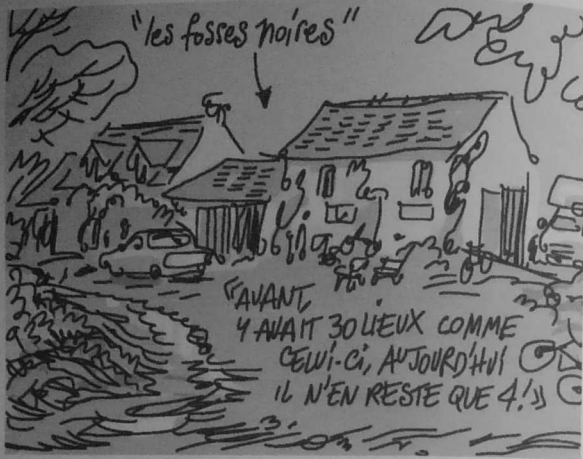 "les fosses noires"
"AVANT,
Y AVAIT 30 LIEUX COMME
CELUI-CI, AUJOURD'HUI
IL N'EN RESTE QUE 4!"